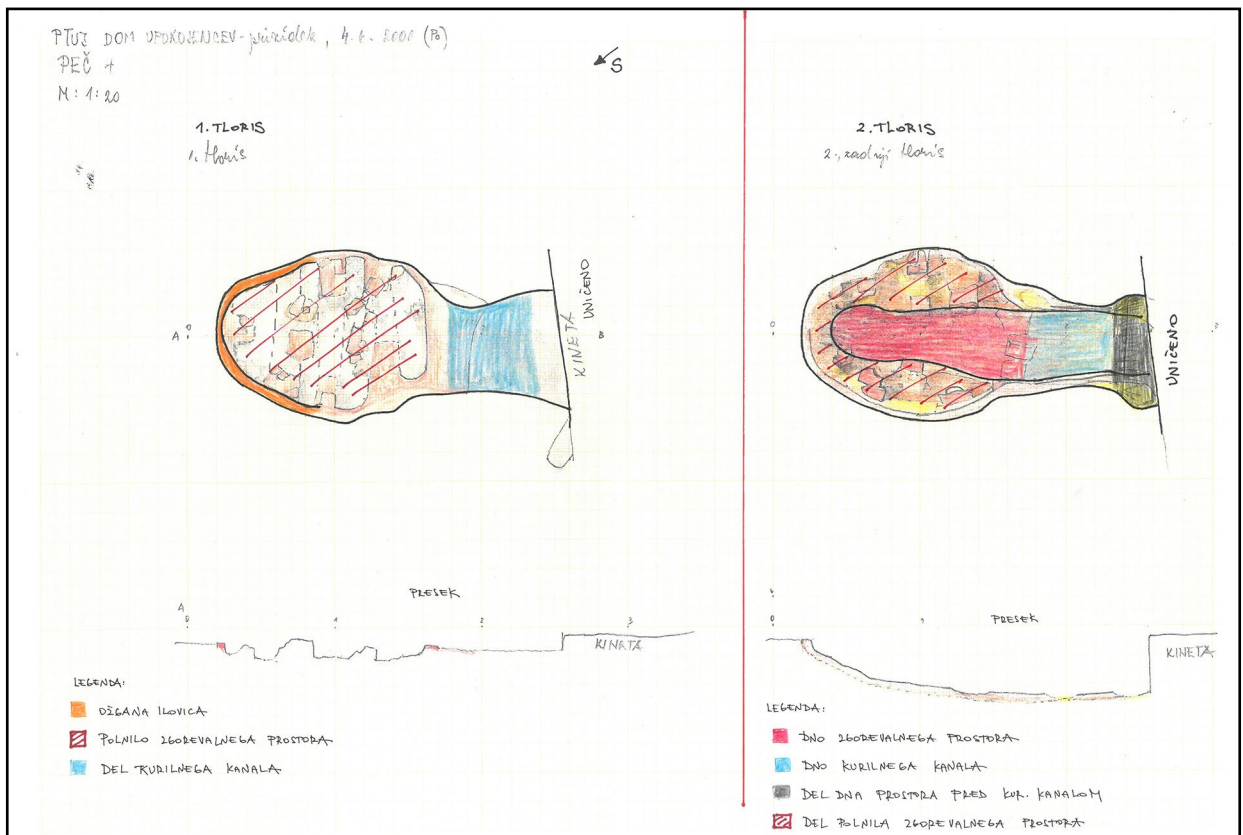 PTUJ DOM UPOKOJENCEV - prizidek, 4. (Po)
PEČ
M: 1:20
S
1. TLORIS
1. tloris
A 0
KINETA
UNIČENO
B
PRESEK
A
0 1 2 3
KINETA
LEGENDA:
OŽGANA ILOVICA
POLNILO ZGOREVALNEGA PROSTORA
DEL KURILNEGA KANALA
2. TLORIS
2., zadnji tloris
0
UNIČENO
0 1
PRESEK
KINETA
LEGENDA:
DNO ZGOREVALNEGA PROSTORA
DNO KURILNEGA KANALA
DEL DNA PROSTORA PRED KUR. KANALOM
DEL POLNILA ZGOREVALNEGA PROSTORA